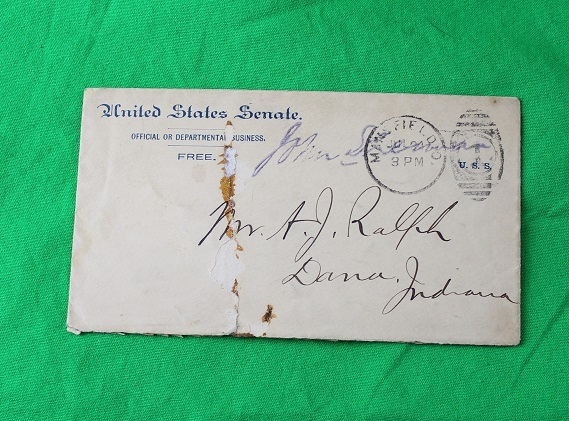 United States Senate.
OFFICIAL OR DEPARTMENTAL BUSINESS.
FREE.
John Sherman
MANSFIELD O
3 PM
U.S.S.
Mr. A. J. Ralph
Dana, Indiana